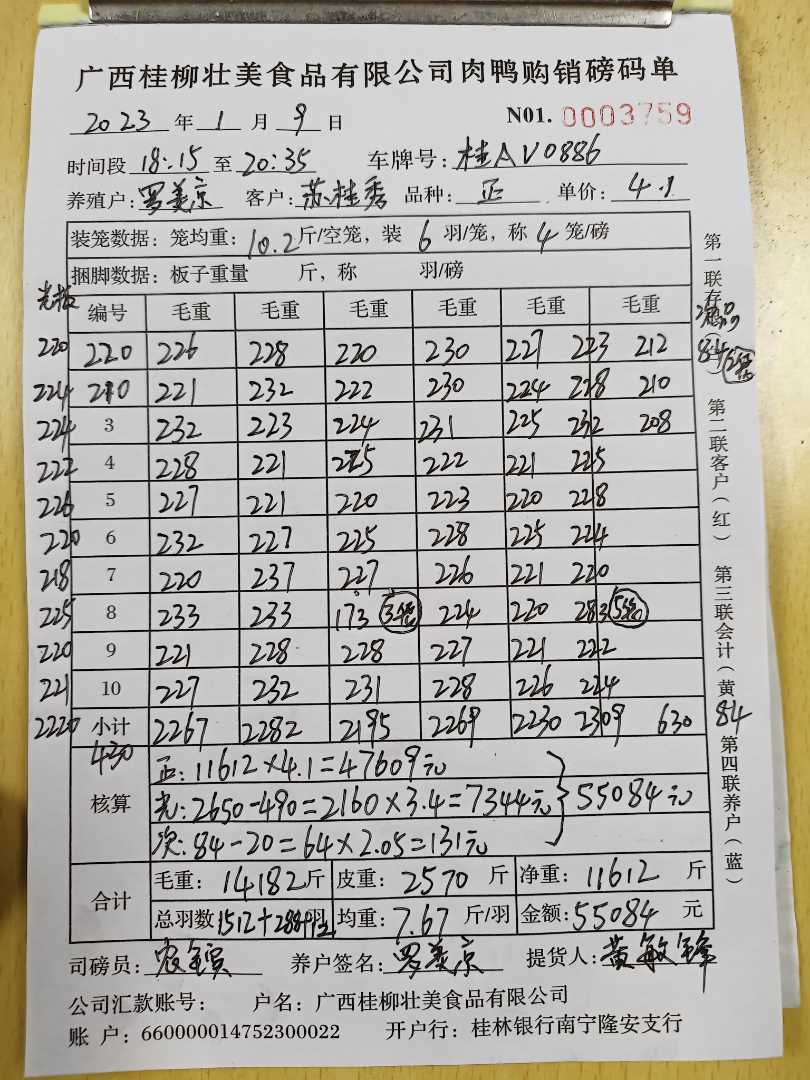 广西桂柳壮美食品有限公司肉鸭购销磅码单
2023 年 1 月 9 日 N01. 0003759
时间段 18:15 至 20:35 车牌号: 桂AV0886
养殖户: 罗美京 客户: 苏桂秀 品种: 正 单价: 4.1
装笼数据: 笼均重: 10.2 斤/空笼, 装 6 羽/笼, 称 4 笼/磅
捆脚数据: 板子重量 斤, 称 羽/磅
编号 毛重 毛重 毛重 毛重 毛重 毛重
220 220 226 228 220 230 227 223 212 84
224 210 221 232 222 230 224 228 210
224 3 232 223 224 231 225 232 208
222 4 228 221 225 222 221 225
226 5 227 221 220 223 220 228
220 6 232 227 225 228 225 224
218 7 220 237 227 226 221 220
225 8 233 233 173 224 220 283
220 9 221 228 228 227 221 222
221 10 227 232 231 228 226 224
2220 小计 2267 2282 2195 2269 2230 2309 630 84
430
核算
正: 11612×4.1=47609元
光: 2650-490=2160×3.4=7344元 } 55084元
次: 84-20=64×2.05=131元
合计
毛重: 14182 斤 皮重: 2570 斤 净重: 11612 斤
总羽数 1512+288+12 羽 均重: 7.67 斤/羽 金额: 55084 元
司磅员: 养户签名: 罗美京 提货人: 黄敏锋
公司汇款账号: 户名: 广西桂柳壮美食品有限公司
账 户: 660000014752300022 开户行: 桂林银行南宁隆安支行
第一联存
第二联客户(红)
第三联会计(黄)
第四联养户(蓝)